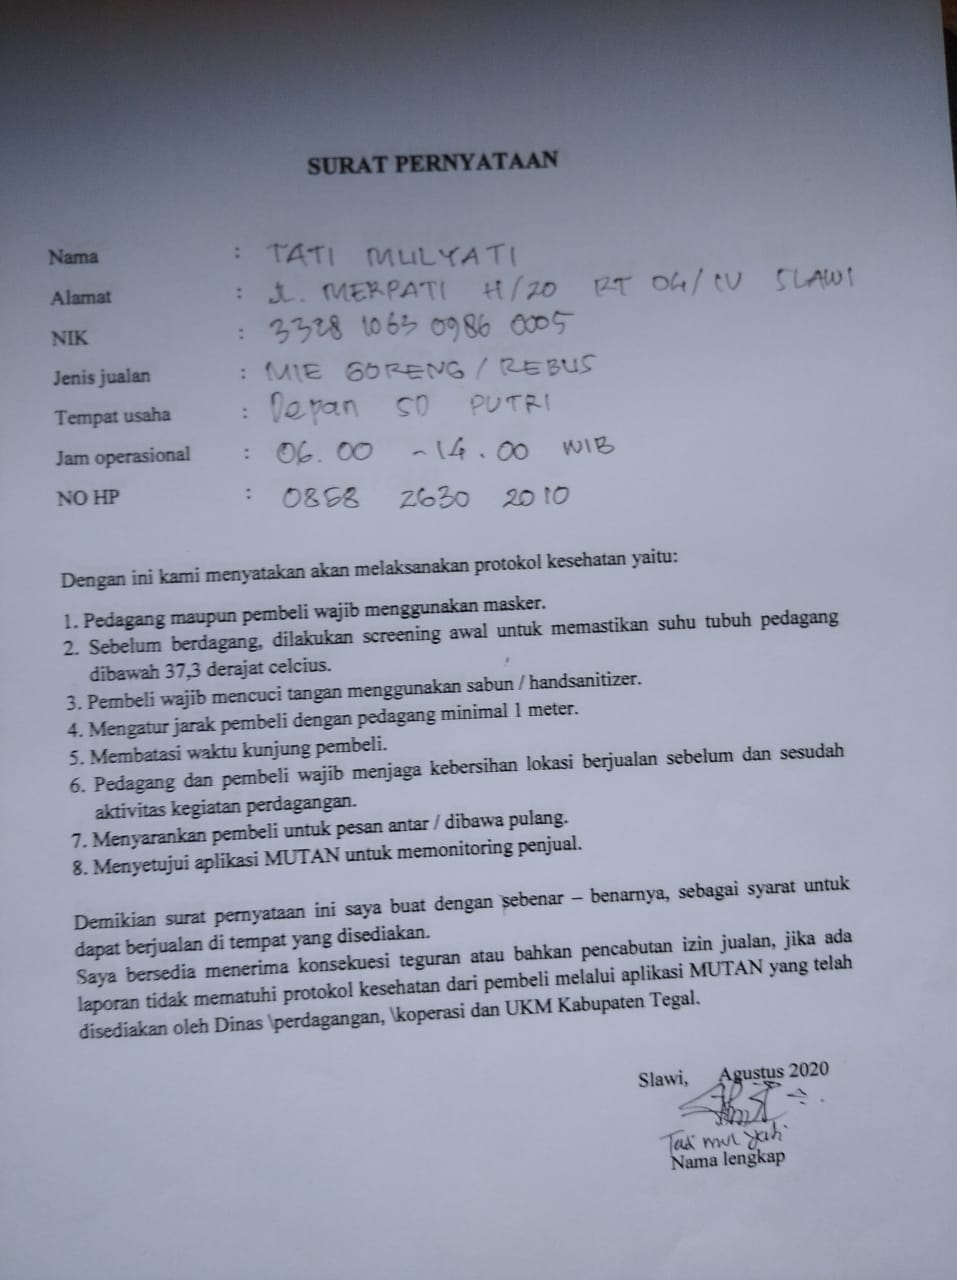 SURAT PERNYATAAN
Nama : TATI MULYATI
Alamat : JL. MERPATI H/20 RT 04/IV SLAWI
NIK : 3328 1063 0986 0005
Jenis jualan : MIE GORENG / REBUS
Tempat usaha : Depan SD PUTRI
Jam operasional : 06.00 - 14.00 WIB
NO HP : 0858 2630 2010
Dengan ini kami menyatakan akan melaksanakan protokol kesehatan yaitu:
1. Pedagang maupun pembeli wajib menggunakan masker.
2. Sebelum berdagang, dilakukan screening awal untuk memastikan suhu tubuh pedagang
dibawah 37,3 derajat celcius.
3. Pembeli wajib mencuci tangan menggunakan sabun / handsanitizer.
4. Mengatur jarak pembeli dengan pedagang minimal 1 meter.
5. Membatasi waktu kunjung pembeli.
6. Pedagang dan pembeli wajib menjaga kebersihan lokasi berjualan sebelum dan sesudah
aktivitas kegiatan perdagangan.
7. Menyarankan pembeli untuk pesan antar / dibawa pulang.
8. Menyetujui aplikasi MUTAN untuk memonitoring penjual.
Demikian surat pernyataan ini saya buat dengan sebenar – benarnya, sebagai syarat untuk
dapat berjualan di tempat yang disediakan.
Saya bersedia menerima konsekuesi teguran atau bahkan pencabutan izin jualan, jika ada
laporan tidak mematuhi protokol kesehatan dari pembeli melalui aplikasi MUTAN yang telah
disediakan oleh Dinas \perdagangan, \koperasi dan UKM Kabupaten Tegal.
Slawi, Agustus 2020
Tati mulyati
Nama lengkap